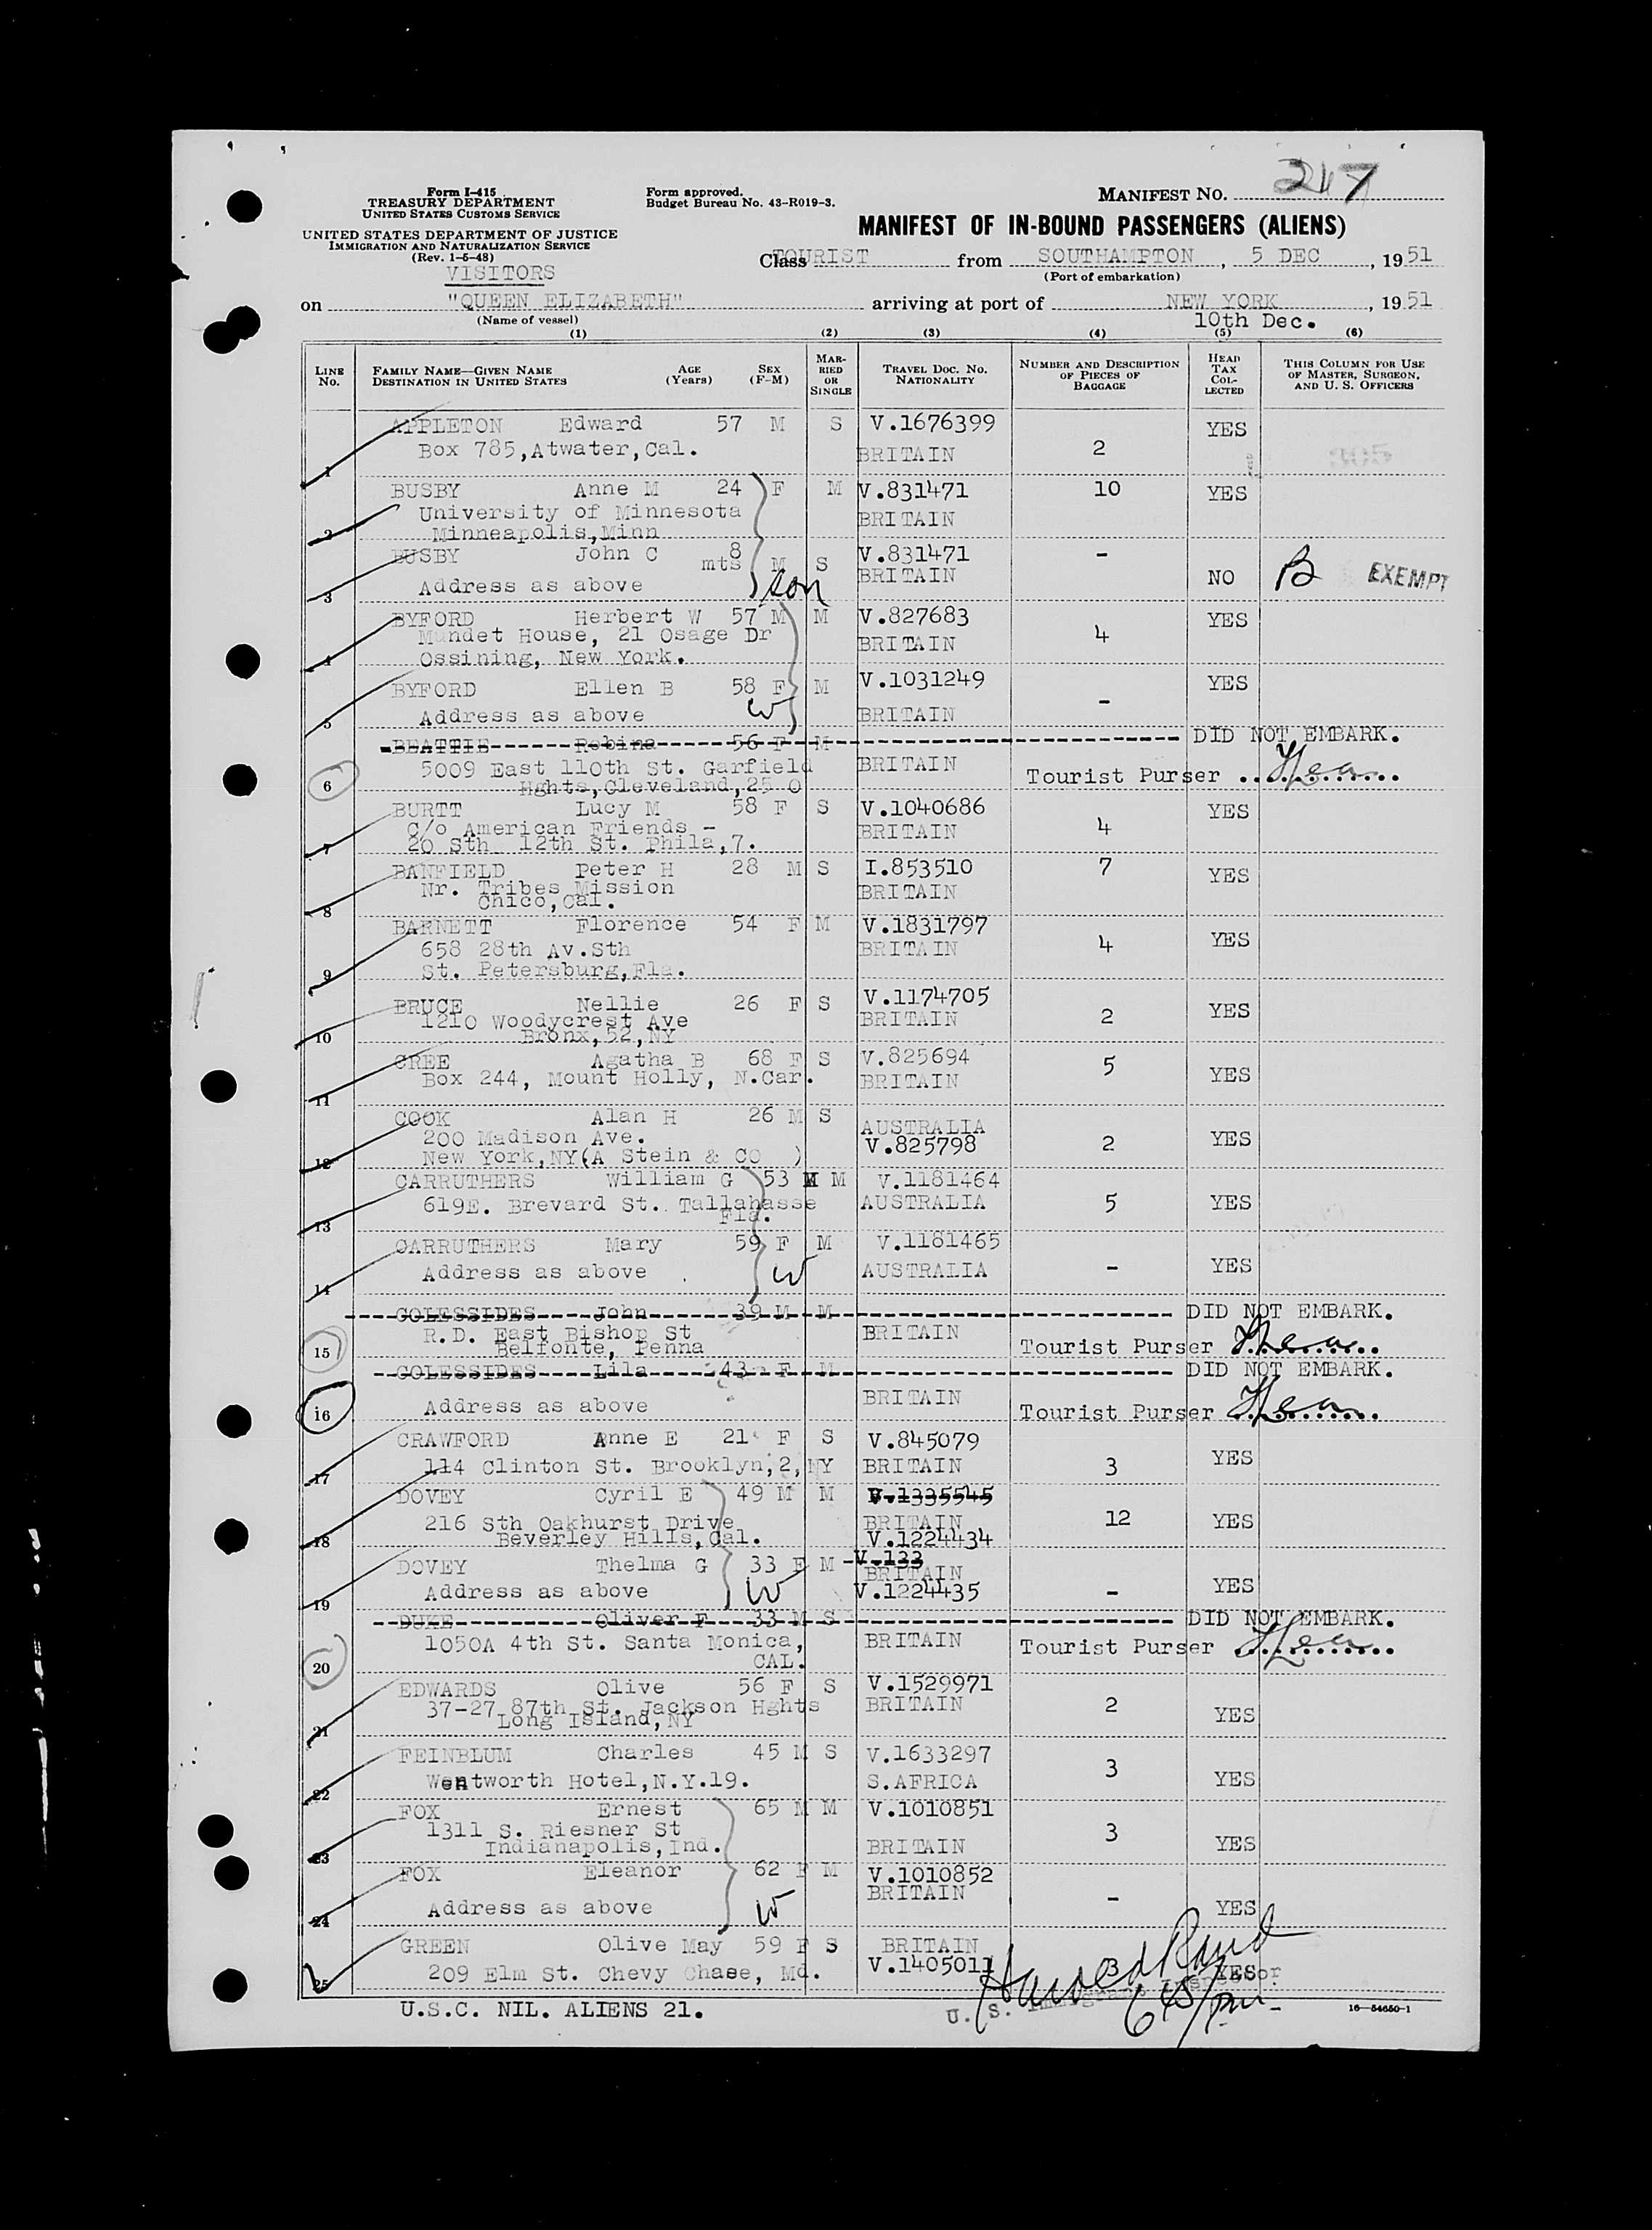 217
Form I-415
TREASURY DEPARTMENT
UNITED STATES CUSTOMS SERVICE
UNITED STATES DEPARTMENT OF JUSTICE
IMMIGRATION AND NATURALIZATION SERVICE
(Rev. 1-5-48)
VISITORS
Form approved.
Budget Bureau No. 43-R019-3.
MANIFEST NO.
MANIFEST OF IN-BOUND PASSENGERS (ALIENS)
Class TOURIST from SOUTHAMPTON, 5 DEC, 1951
(Port of embarkation)
on "QUEEN ELIZABETH" arriving at port of NEW YORK, 1951
(Name of vessel) 10th Dec.
(1) (2) (3) (4) (5) (6)
LINE No. FAMILY NAME—GIVEN NAME DESTINATION IN UNITED STATES AGE (Years) SEX (F-M) MARRIED OR SINGLE TRAVEL DOC. NO. NATIONALITY NUMBER AND DESCRIPTION OF PIECES OF BAGGAGE HEAD TAX COLLECTED THIS COLUMN FOR USE OF MASTER, SURGEON, AND U. S. OFFICERS
APPLETON Edward 57 M S V.1676399 YES
1 Box 785,Atwater,Cal. BRITAIN 2 305
BUSBY Anne M 24 F M V.831471 10 YES
University of Minnesota BRITAIN
2 Minneapolis,Minn
BUSBY John C 8 mts M S V.831471 -
3 Address as above son BRITAIN NO B EXEMPT
BYFORD Herbert W 57 M M V.827683 YES
Mundet House, 21 Osage Dr BRITAIN 4
4 Ossining, New York.
BYFORD Ellen B 58 F M V.1031249 YES
5 Address as above W BRITAIN -
BEATTIE Robina 56 F M DID NOT EMBARK.
5009 East 110th St. Garfield BRITAIN Tourist Purser
6 Hghts,Cleveland,25 O
BURTT Lucy M 58 F S V.1040686 YES
C/o American Friends - BRITAIN 4
7 20 Sth 12th St. Phila,7.
BANFIELD Peter H 28 M S I.853510 7 YES
Nr. Tribes Mission BRITAIN
8 Chico,Cal.
BARNETT Florence 54 F M V.1831797 YES
658 28th Av.Sth BRITAIN 4
9 St. Petersburg,Fla.
BRUCE Nellie 26 F S V.1174705 YES
1210 Woodycrest Ave BRITAIN 2
10 Bronx,52,NY
CREE Agatha B 68 F S V.825694 5 YES
11 Box 244, Mount Holly, N.Car. BRITAIN
COOK Alan H 26 M S AUSTRALIA
200 Madison Ave. V.825798 2 YES
12 New York,NY(A Stein & CO )
CARRUTHERS William G 53 M M V.1181464
619E. Brevard St. Tallahasse AUSTRALIA 5 YES
13 Fla.
CARRUTHERS Mary 59 F M V.1181465
14 Address as above W AUSTRALIA - YES
COLESSIDES John 39 M M DID NOT EMBARK.
R.D. East Bishop St BRITAIN Tourist Purser
15 Belfonte, Penna
COLESSIDES Lila 43 F M DID NOT EMBARK.
16 Address as above BRITAIN Tourist Purser
CRAWFORD Anne E 21 F S V.845079 YES
17 114 Clinton St. Brooklyn,2,NY BRITAIN 3
DOVEY Cyril E 49 M M V.1335545
216 Sth Oakhurst Drive BRITAIN 12 YES
18 Beverley Hills,Cal. V.1224434
DOVEY Thelma G 33 F M V.133 BRITAIN YES
19 Address as above W V.1224435 -
DUKE Oliver F 33 M S DID NOT EMBARK.
1050A 4th St. Santa Monica, BRITAIN Tourist Purser
20 CAL.
EDWARDS Olive 56 F S V.1529971
37-27 87th St. Jackson Hghts BRITAIN 2 YES
21 Long Island,NY
FEINBLUM Charles 45 M S V.1633297 3
22 Wentworth Hotel,N.Y.19. S.AFRICA YES
FOX Ernest 65 M M V.1010851
1311 S. Riesner St 3
23 Indianapolis,Ind. BRITAIN YES
FOX Eleanor 62 F M V.1010852
BRITAIN -
24 Address as above W YES
GREEN Olive May 59 F S BRITAIN
25 209 Elm St. Chevy Chase, Md. V.1405011 3 YES
U.S.C. NIL. ALIENS 21.
U. S. Immigrant Inspector
645/pm
16—54650-1